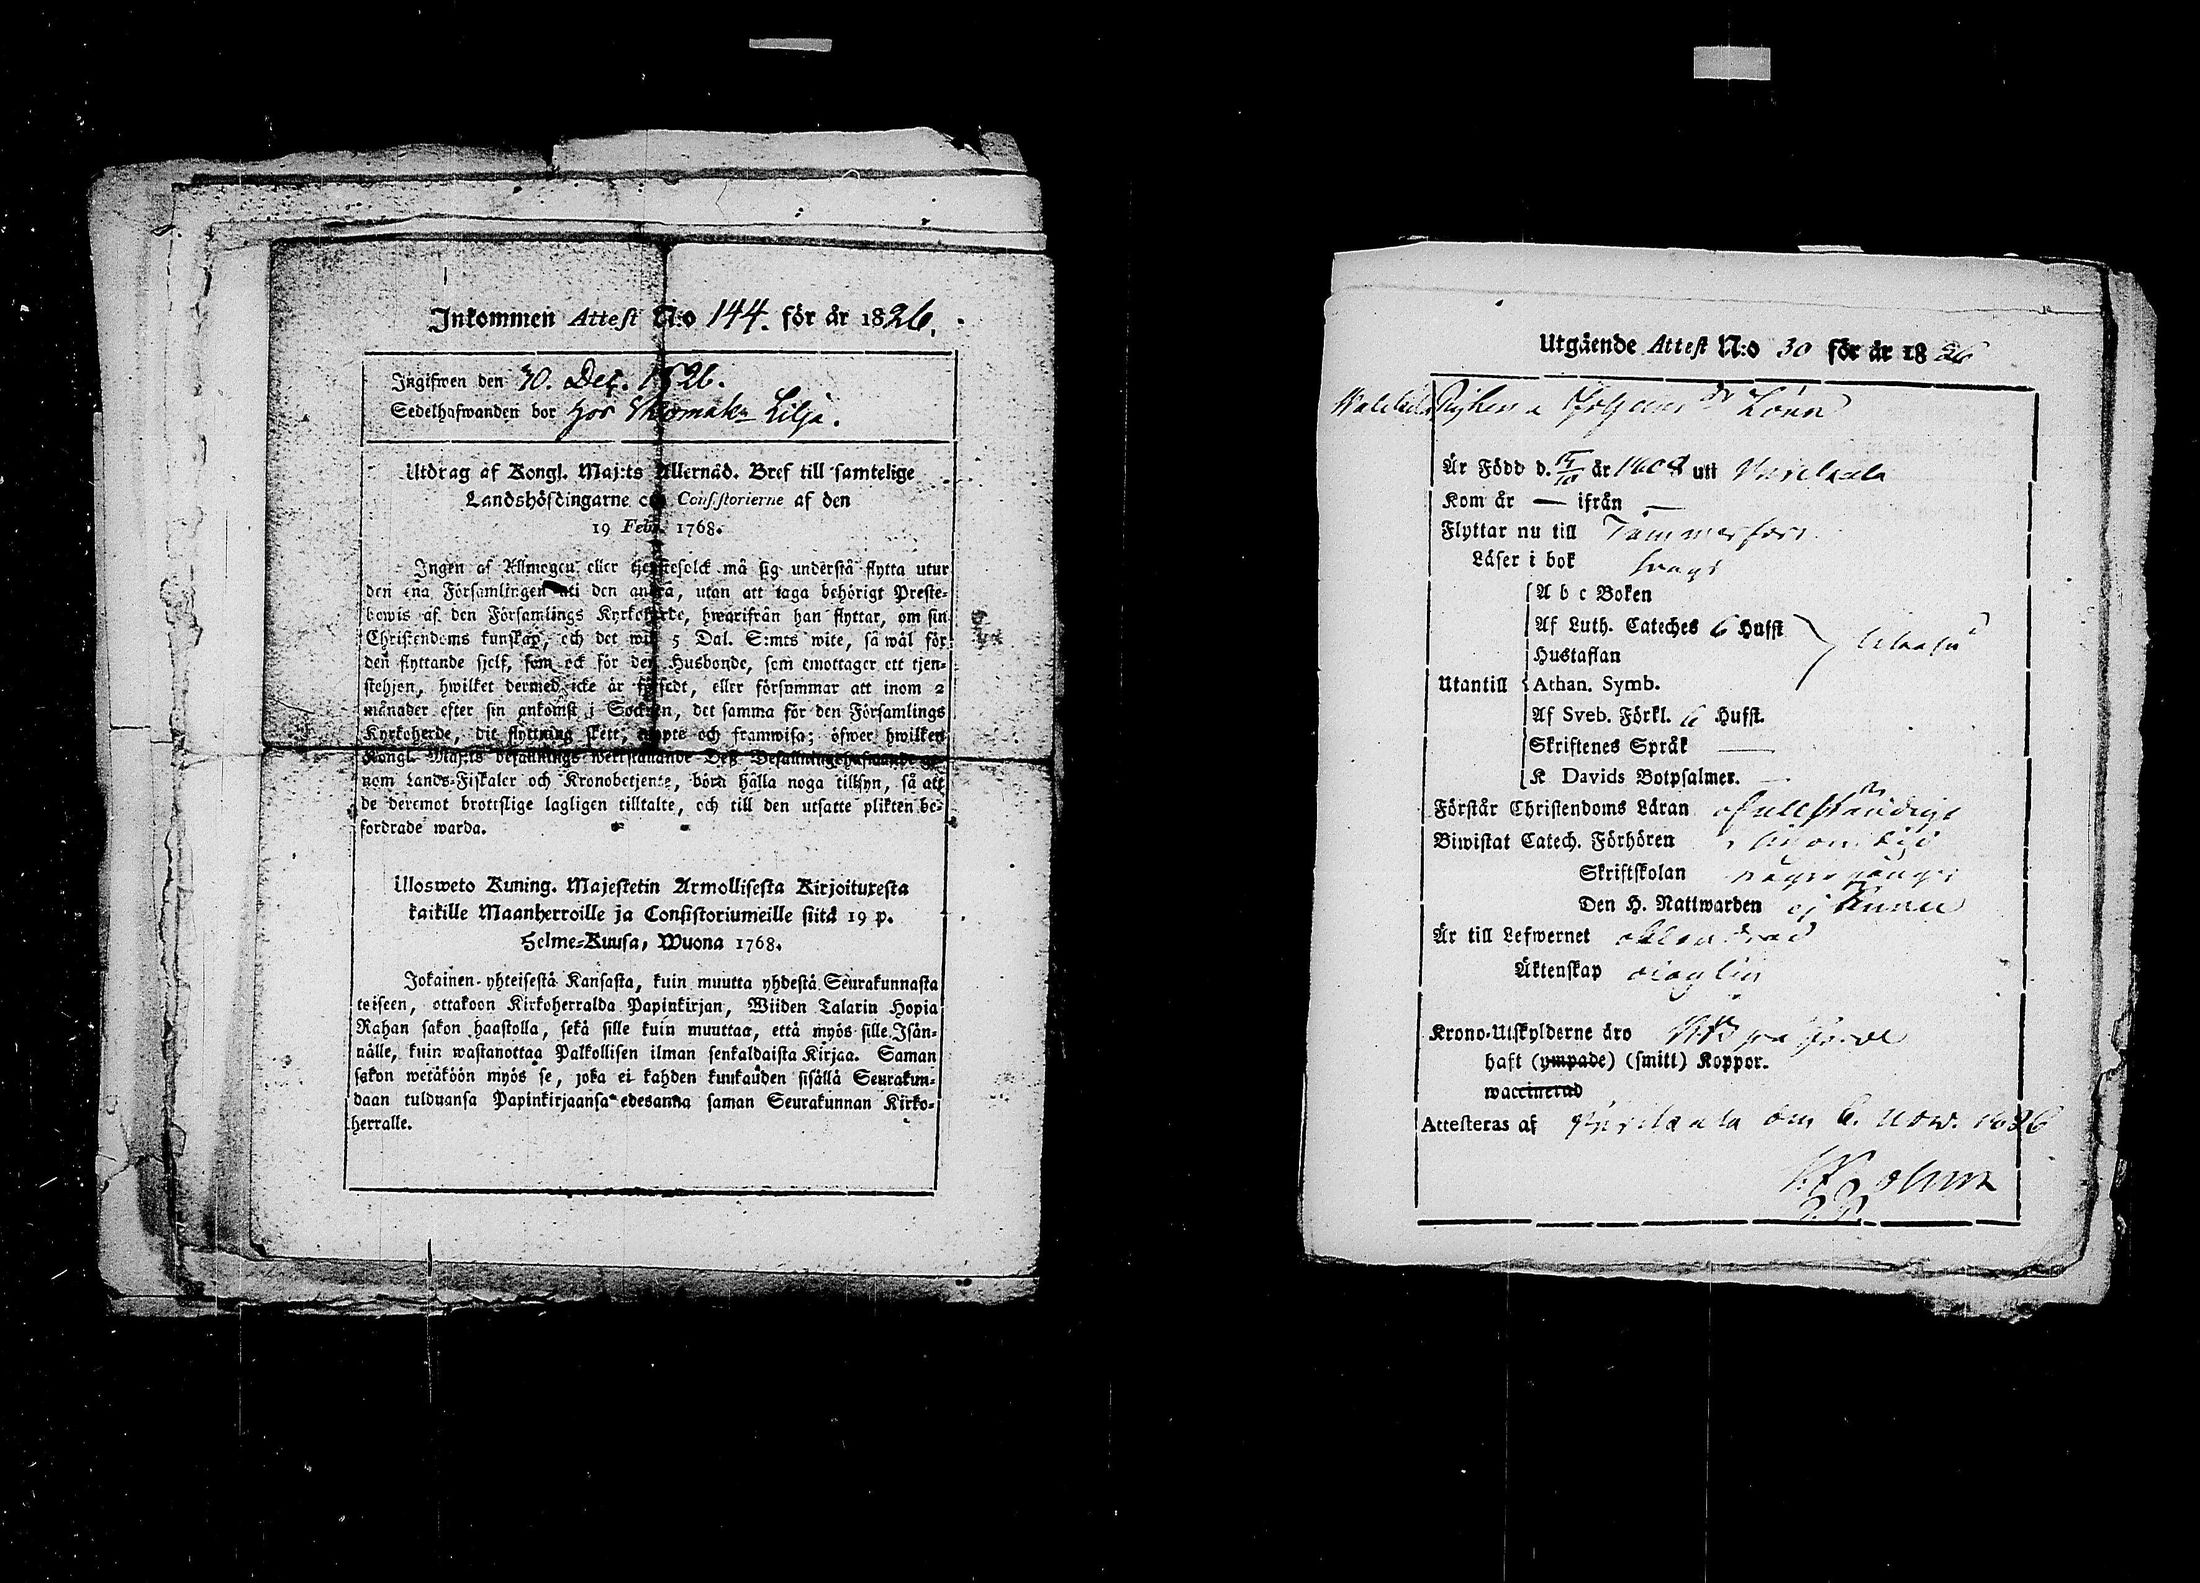 Inkommen Attest N:o 144. för år 1826.
Ingifwen den 30. Dec. 1826.
Sedelhafwanden bor hos Skomak. Lilja.
Utdrag af Kongl. Maj:ts Allernåd. Bref till samtelige
Landshöfdingarne och Consistorierne af den
19 Febr. 1768.
Ingen af Allmogen eller tjenstefolck må sig understå flytta utur
den ena Församlingen uti den andra, utan att taga behörigt Preste-
bewis af den Församlings Kyrkoherde, hwarifrån han flyttar, om sin
Christendoms kunskap, och det wid 5 Dal. S:mts wite, så wäl för
den flyttande sjelf, som ock för den Husbonde, som emottager ett tjen-
stehjon, hwilket dermed icke är försedt, eller försummar att inom 2
månader efter sin ankomst i Socknen, det samma för den Församlings
Kyrkoherde, dit flyttning skett, uppte och framwisa; öfwer hwilken
Kongl. Maj:ts befallnings werkställande Deß Befallningshafwande ge-
nom Lands-Fiskaler och Kronobetjente, böra hålla noga tillsyn, så att
de deremot brottslige lagligen tilltalte, och till den utsatte plikten be-
fordrade warda.
Ulosweto Kuning. Majestetin Armollisesta Kirjoituxesta
kaikille Maanherroille ja Consistoriumeille siitä 19 p.
Helme-Kuusa, Wuona 1768.
Jokainen yhteisestä Kansasta, kuin muutta yhdestä Seurakunnasta
teiseen, ottakoon Kirkoherralda Papinkirjan, Wiiden Talarin Hopia
Rahan sakon haastolla, sekä sille kuin muuttaa, että myös sille Isän-
nälle, kuin wastanottaa Palkollisen ilman senkaldaista Kirjaa. Saman
sakon wetäköön myös se, joka ei kahden kuukauden sisällä Seurakun-
daan tulduansa Papinkirjaansa edesanna saman Seurakunnan Kirko-
herralle.
Utgående Attest N:o 30 för år 1826
Pigan Lönn
Är Född d. år 1808 uti Messukylä
Kom år — ifrån —
Flyttar nu till Tammerfors
Läser i bok svagt
A b c Boken
Af Luth. Cateches 6 Hufst
Hustaflan
Utantill Athan. Symb.
Af Sveb. Förkl. 6 Hufst.
Skriftenes Språk —
K Davids Botpsalmer. —
Förstår Christendoms Läran ofullständigt
Biwistat Catech. Förhören
Skriftskolan några gånger
Den H. Nattwarden ej ännu
Är till Lefwernet oklandrad
Äktenskap
Krono-Utskylderne äro
haft (ympade) (smitt) Koppor.
waccinerad
Attesteras af den 6. Nov. 1826